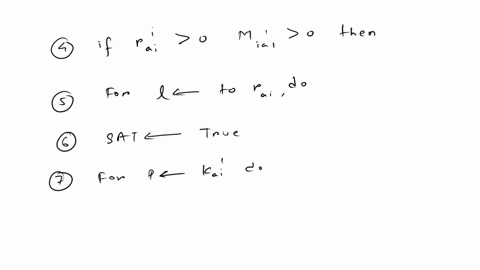 ④ if r'ai > 0 M'ia, > 0 then
⑤ For l ← to rai, do
⑥ SAT ← True
⑦ For q ← K'ai do